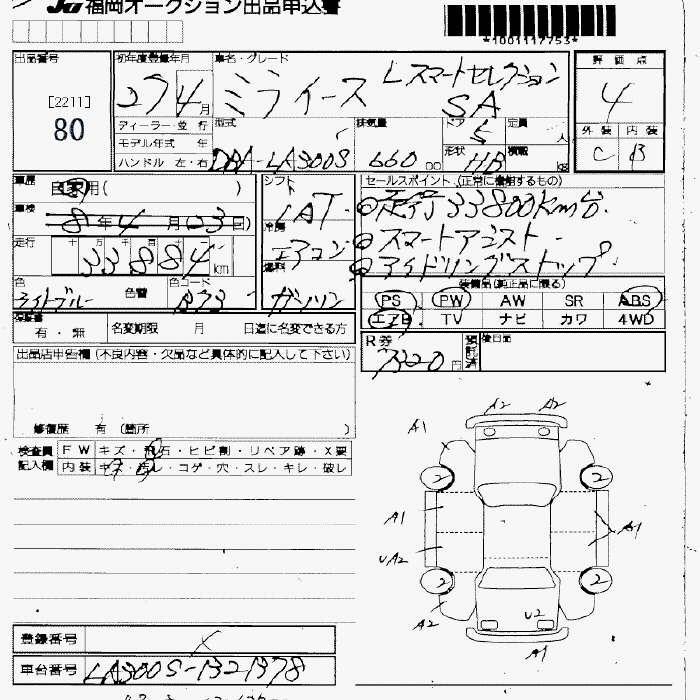 JU福岡オークション出品申込書
*1001117753*
出品番号 初年度登録年月 車名・グレード 評価点
[2211]
80
27 4月 ミライース Lスマートセレクション SA
4
ディーラー・並行 型式 排気量 ドア 定員 人 外装 内装
モデル年式 年
ハンドル 左・右 DBA-LA300S 660 cc 5 形状 H/B 積載 kg C B
車歴 自家用( ) シフト セールスポイント (正常に機能するもの)
LAT ◎走行33800km台
車検 8年4月(03回) 冷房 エアコン ◎スマートアシスト
走行 十 万 千 百 十 一 33884km 燃料 ガソリン ◎アイドリングストップ
色 ライトブルー 色替 色カラード B73
装備品(純正品に限る)
PS PW AW SR ABS
エアB TV ナビ カワ 4WD
保証書 有・無 名変期限 月 日迄に名変できる方
R券 7320円 預託済 後日品
出品店申告欄(不良内容・欠品など具体的に記入して下さい)
修復歴 有 (箇所 )
検査員記入欄 FW キズ・飛石・ヒビ割・リペア跡・X要
内装 キズ・汚レ・コゲ・穴・スレ・キレ・破レ
A2 A2
A1
2 2
A1 A1
UA2
2 2
A2 U2
A1
登録番号
車台番号 LA300S-1321378